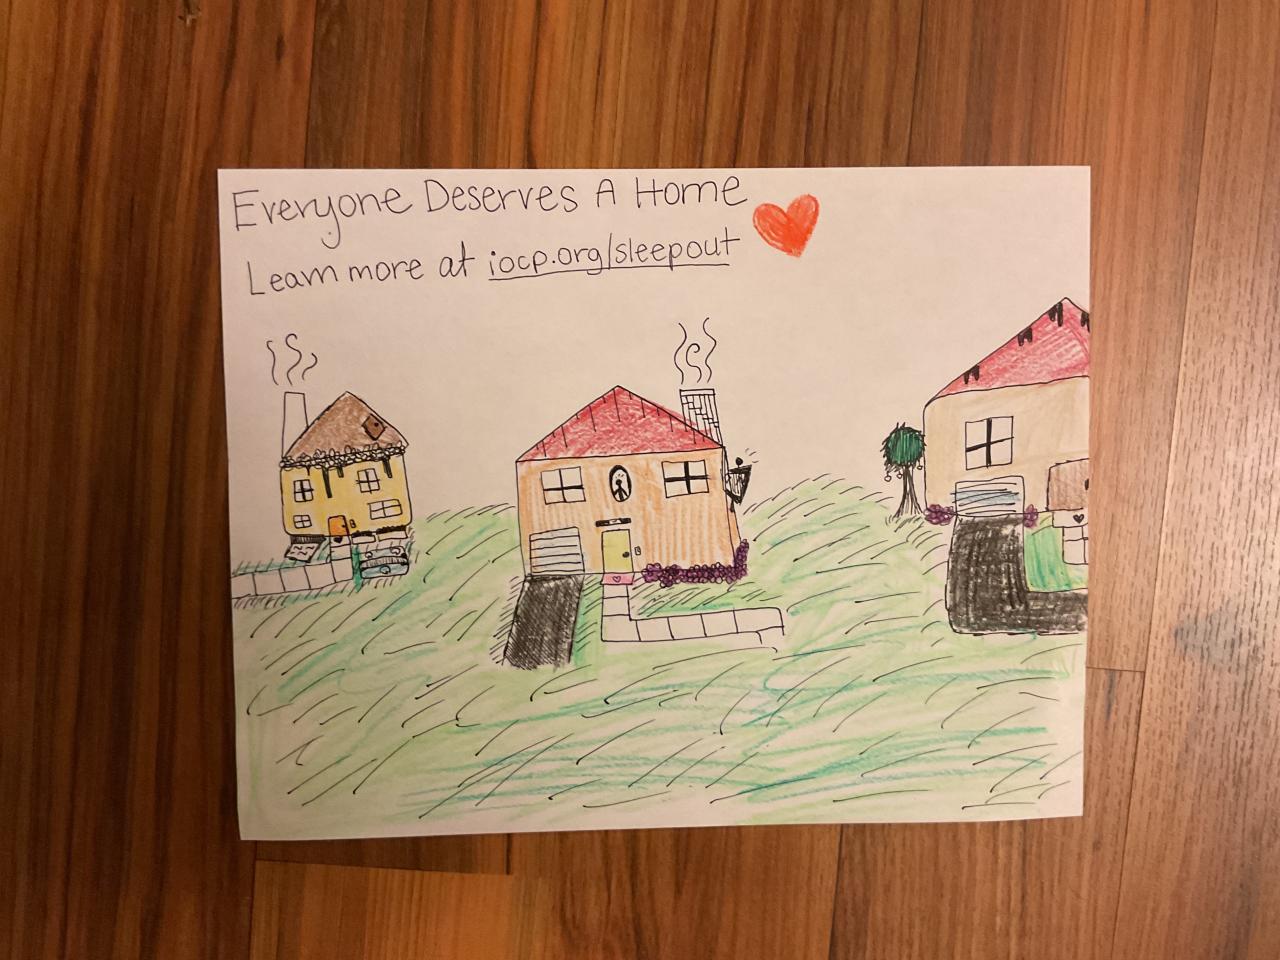 Everyone Deserves A Home
Learn more at iocp.org/sleepout